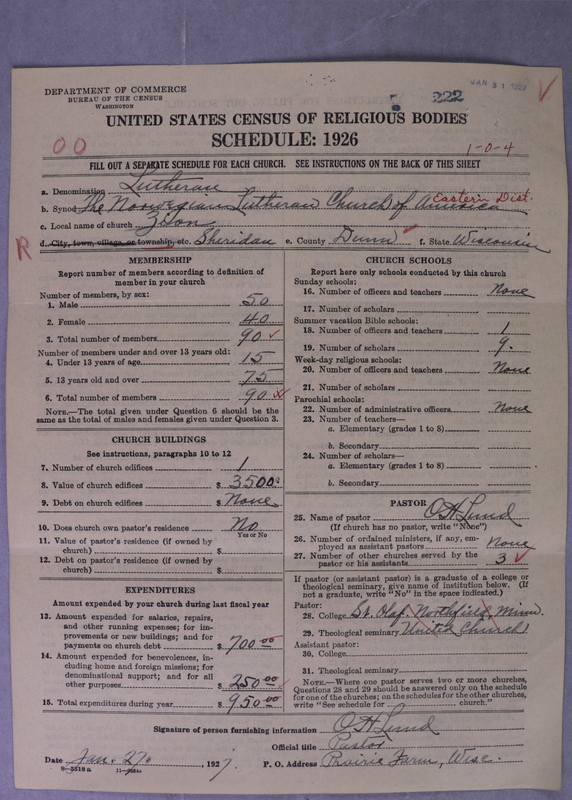 DEPARTMENT OF COMMERCE
BUREAU OF THE CENSUS
WASHINGTON
JAN 31 1927
222
UNITED STATES CENSUS OF RELIGIOUS BODIES
SCHEDULE: 1926
00
1-0-4
FILL OUT A SEPARATE SCHEDULE FOR EACH CHURCH. SEE INSTRUCTIONS ON THE BACK OF THIS SHEET
a. Denomination Lutheran
b. Synod The Norwegian Lutheran Church of America Eastern Dist.
c. Local name of church Zion
R
d. City, town, village, or township, etc. Sheridan e. County Dunn f. State Wisconsin
MEMBERSHIP
Report number of members according to definition of
member in your church
Number of members, by sex:
1. Male 50
2. Female 40
3. Total number of members 90
Number of members under and over 13 years old:
4. Under 13 years of age 15
5. 13 years old and over 75
6. Total number of members 90
NOTE.—The total given under Question 6 should be the
same as the total of males and females given under Question 3.
CHURCH BUILDINGS
See instructions, paragraphs 10 to 12
7. Number of church edifices 1
8. Value of church edifices $ 3500
9. Debt on church edifices $ None
10. Does church own pastor's residence No
Yes or No
11. Value of pastor's residence (if owned by
church) $
12. Debt on pastor's residence (if owned by
church) $
EXPENDITURES
Amount expended by your church during last fiscal year
13. Amount expended for salaries, repairs,
and other running expenses; for im-
provements or new buildings; and for
payments on church debt $ 700 00
14. Amount expended for benevolences, in-
cluding home and foreign missions; for
denominational support; and for all
other purposes $ 250 00
15. Total expenditures during year $ 950 00
CHURCH SCHOOLS
Report here only schools conducted by this church
Sunday schools:
16. Number of officers and teachers None
17. Number of scholars
Summer vacation Bible schools:
18. Number of officers and teachers 1
19. Number of scholars 9.
Week-day religious schools:
20. Number of officers and teachers None
21. Number of scholars
Parochial schools:
22. Number of administrative officers None
23. Number of teachers—
a. Elementary (grades 1 to 8)
b. Secondary
24. Number of scholars—
a. Elementary (grades 1 to 8)
b. Secondary
PASTOR
25. Name of pastor O H Lund
(If church has no pastor, write "None")
26. Number of ordained ministers, if any, em-
ployed as assistant pastors None
27. Number of other churches served by the
pastor or his assistants 3
If pastor (or assistant pastor) is a graduate of a college or
theological seminary, give name of institution below. (If
not a graduate, write "No" in the space indicated.)
Pastor:
28. College St. Olaf, Northfield, Minn.
29. Theological seminary United Church
Assistant pastor:
30. College
31. Theological seminary
NOTE.—Where one pastor serves two or more churches,
Questions 28 and 29 should be answered only on the schedule
for one of the churches; on the schedules for the other churches,
write "See schedule for ........ church."
Signature of person furnishing information O H Lund
Official title Pastor
Date Jan. 27, 1927. P. O. Address Prairie Farm, Wisc.
8—5518 a